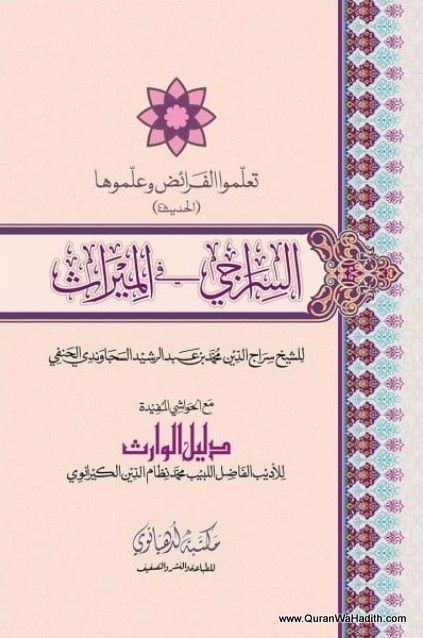 تعلّموا الفرائض وعلّموها
(الحديث)
السراجي في الميراث
للشيخ سراج الدين محمد بن عبد الرشيد السجاوندي الحنفي
مع الحواشي المفيدة
دليل الوارث
للأديب الفاضل اللبيب محمد نظام الدين الكيرانوي
مكتبة لدهيانوي
للطباعة والنشر والتصفيف
www.QuranWaHadith.com